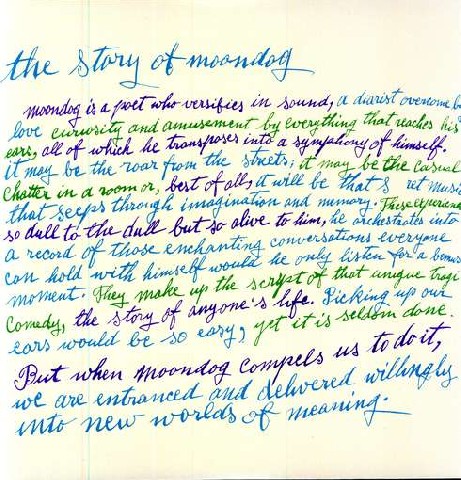 the story of moondog
moondog is a poet who versifies in sound, a diarist overcome b
love curiosity and amusement by everything that reaches his
ears, all of which he transposes into a symphony of himself.
it may be the roar from the streets; it may be the casual
chatter in a room or, best of all, it will be that s ret music
that seeps through imagination and mimory. These experienc
so dull to the dull but so alive to him, he orchestrates into
a record of those enchanting conversations everyone
can hold with himself would he only listen for a bonus
moment. They make up the script of that unique tragi
comedy, the story of anyone's life. Picking up our
ears would be so easy, yet it is seldom done.
But when moondog compels us to do it,
we are entranced and delivered willingly
into new worlds of meaning.